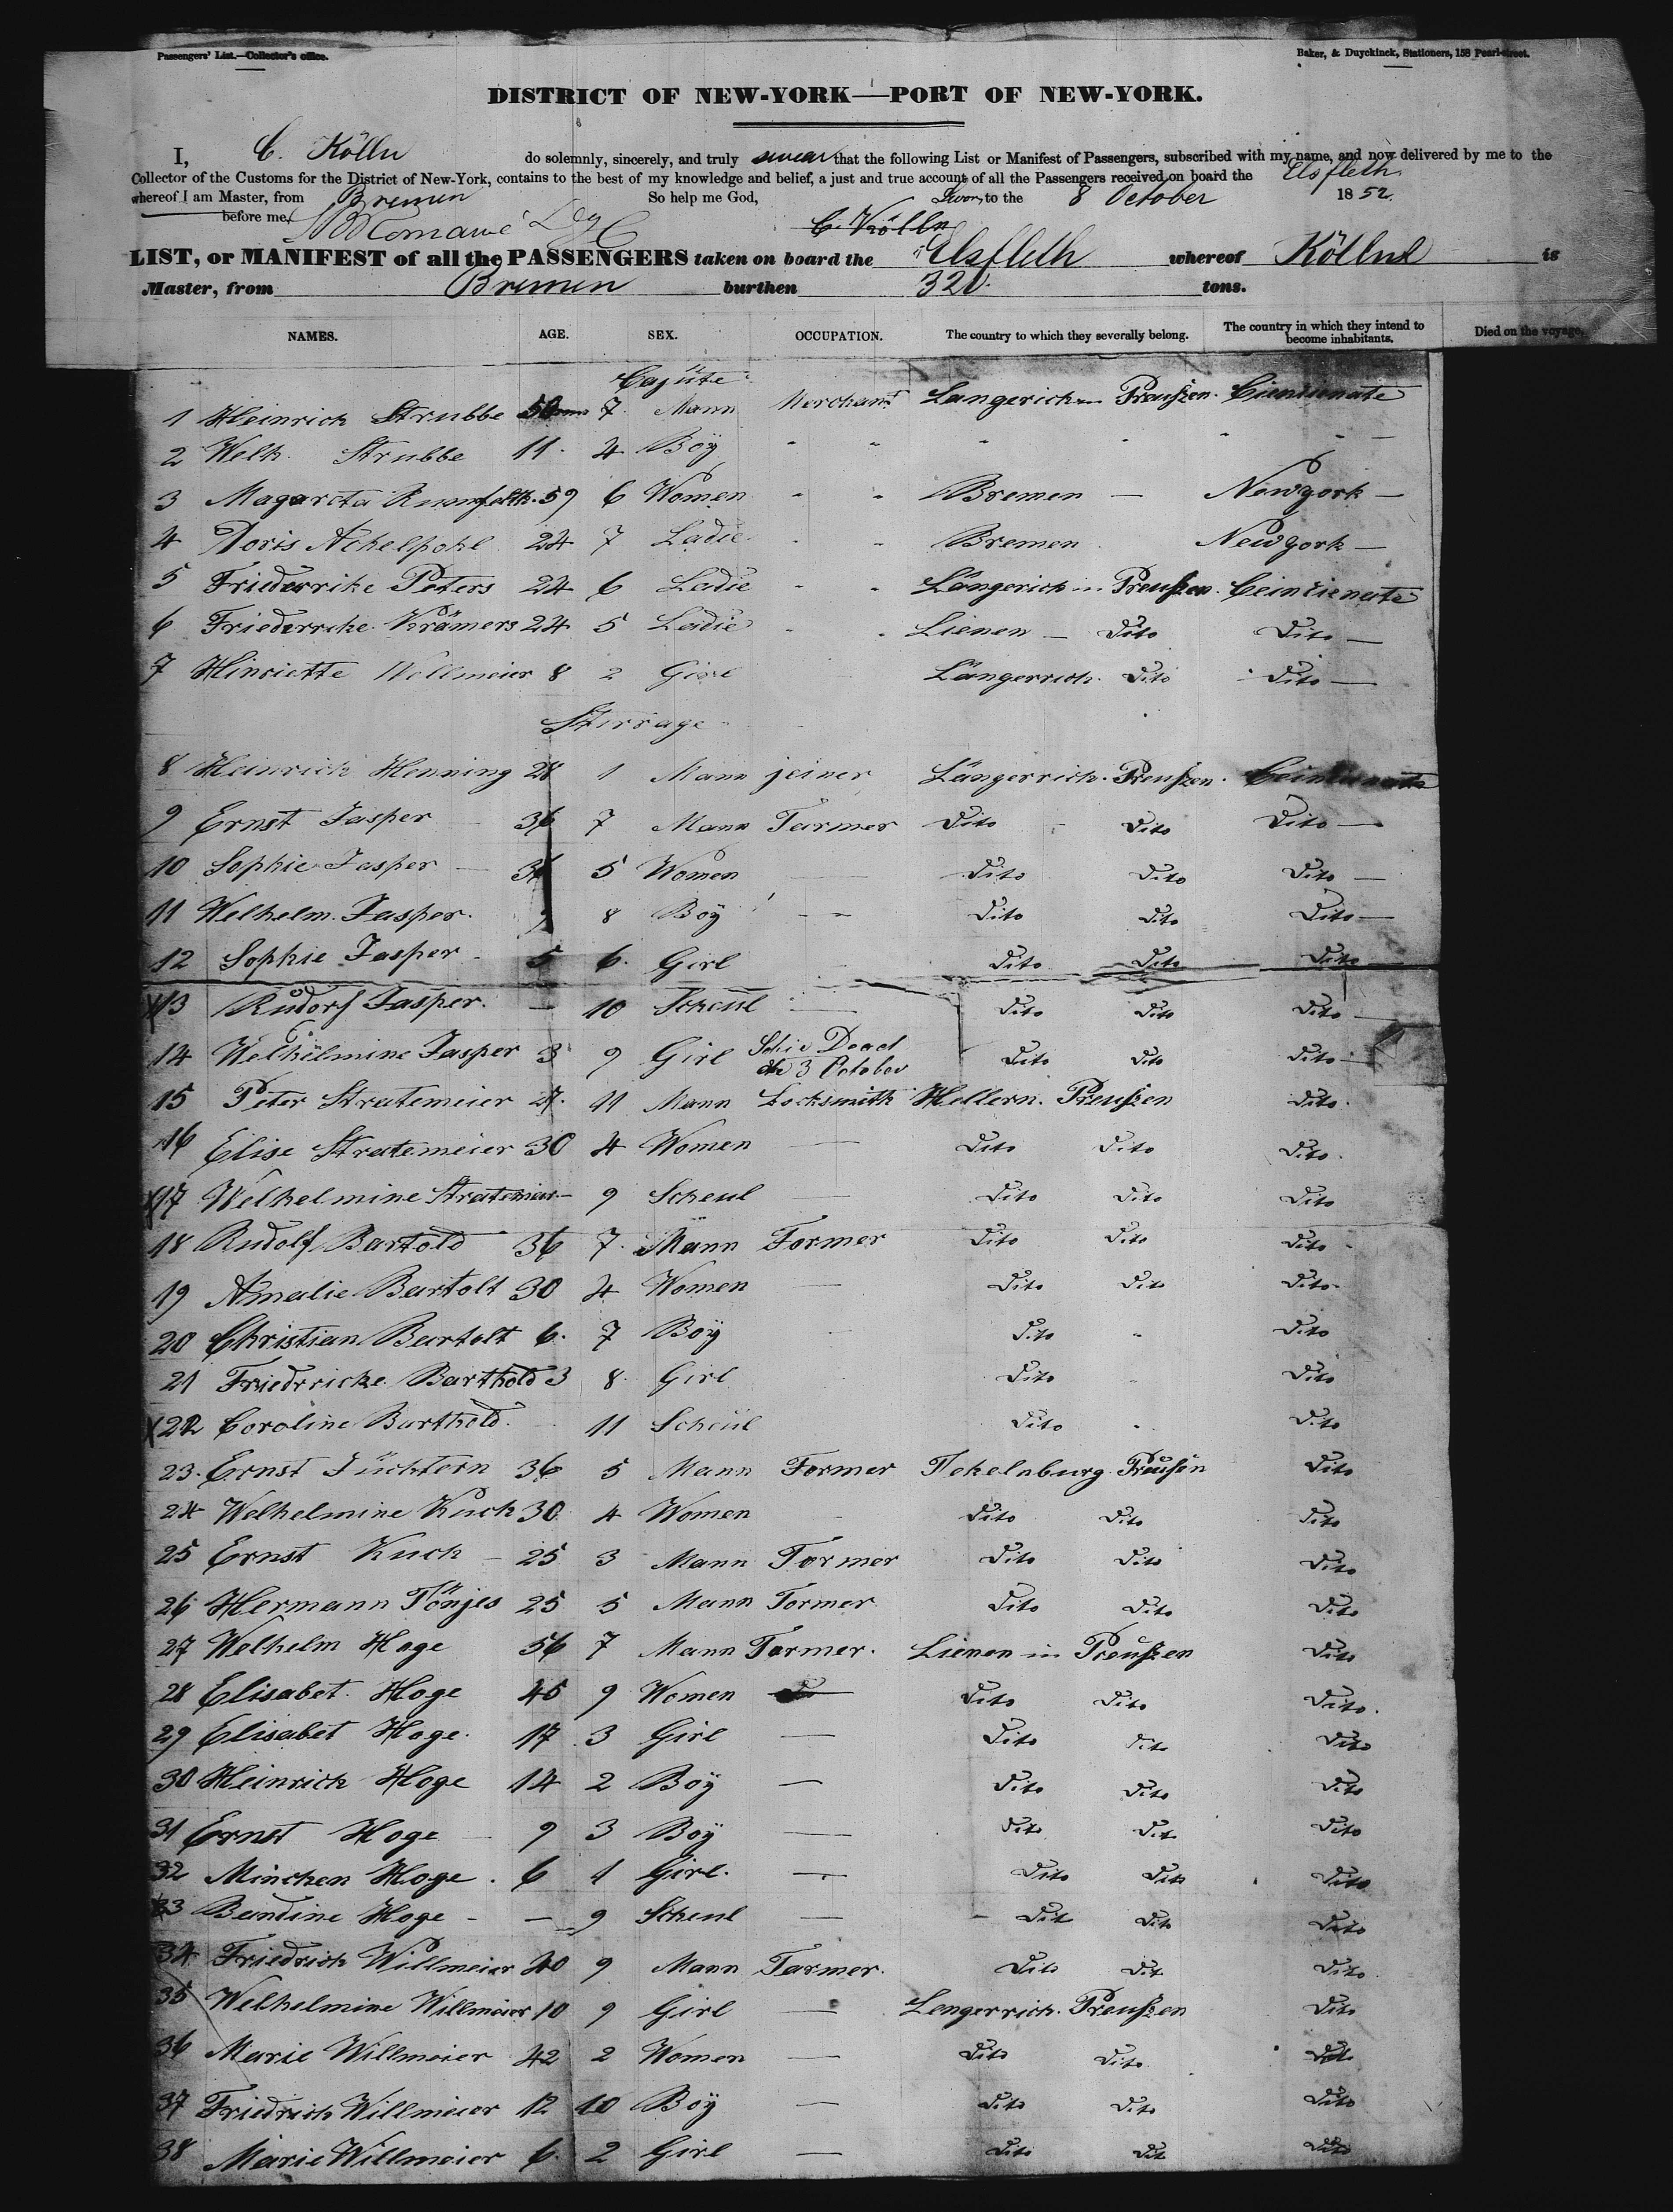 Passengers' List.—Collector's office.
Baker, & Duyckinck, Stationers, 158 Pearl-street.
DISTRICT OF NEW-YORK—PORT OF NEW-YORK.
I, C. Kölln do solemnly, sincerely, and truly swear that the following List or Manifest of Passengers, subscribed with my name, and now delivered by me to the
Collector of the Customs for the District of New-York, contains to the best of my knowledge and belief, a just and true account of all the Passengers received on board the Elsfleth
whereof I am Master, from Bremen So help me God, Sworn to the 8 October 1852.
before me,
C. Kölln
LIST, or MANIFEST of all the PASSENGERS taken on board the Elsfleth whereof Kölln is
Master, from Bremen burthen 320 tons.
NAMES. AGE. SEX. OCCUPATION. The country to which they severally belong. The country in which they intend to become inhabitants. Died on the voyage.
Cajüte
1 Heinrich Strubbe 50 7 Mann Merchant Langerich Preußen. Cientienate
2 Welh. Strubbe 11 4 Boÿ " " " " " "
3 Magareta 59 6 Women " " Bremen — Newyork —
4 Doris Achelpohl 24 7 Ladie " " Bremen Newyork —
5 Friederrike Peters 24 6 Ladie " " Längerich in Preußen. Ceintienate
6 Friederrike Krämers 24 5 Ladie " " Lienen — Dito Dito —
7 Hinriette Wellmeier 8 2 Girl Längerrich. Dito Dito —
Stirrage
8 Heinrich Henning 28 1 Mann jeiner Längerrich. Preußen.
9 Ernst Jasper 36 7 Mann Farmer Dito Dito Dito —
10 Sophie Jasper — 5 Women — Dito Dito Dito —
11 Welhelm. Jasper. 9 8 Boÿ " " Dito Dito Dito —
12 Sophie Jasper 5 6. Girl Dito Dito Dito
X13 Rudorf Jasper. — 10 Scheul Dito Dito Dito
14 Welhelmine Jasper 3 9 Girl Schie Dead Dito Dito Dito
3 October
15 Peter Stratemeier 11 Mann Locksmith Hellern. Preußen Dito.
16 Elise Stratemeier 30 4 Women — Dito Dito Dito.
X17 Welhelmine Stratemeier — 9 Scheul — Dito Dito Dito
18 Rudolf Bartold 36 7. Mann Former Dito Dito Dito
19 Amalie Bartolt 30 4 Women — Dito Dito Dito.
20 Christian Bartolt 6. 7 Boÿ Dito " Dito
21 Friedricke Barthold 3 8 Girl Dito " Dito
X22 Coroline Barthold. 11 Scheul Dito " Dito
23. Ernst Füchtern 36 5 Mann Former Tekelnburg. Preußen Dito
24 Welhelmine Kuck 30 4 Women Dito Dito Dito
25 Ernst Kuck — 25 3 Mann Former Dito Dito Dito
26 Hermann Tönjes 25 5 Mann Former Dito Dito Dito
27 Welhelm Hoge 56 7 Mann Farmer. Lienen in Preußen Dito
28 Elisabet Hoge 45 9 Women Dito Dito Dito.
29 Elisabet Hoge. 17 3 Girl — Dito Dito Dito
30 Heinrich Hoge 14 2 Boÿ — Dito Dito Dito
31 Ernst Hoge — 9 3 Boÿ — Dito Dito Dito
32 Minchen Hoge. 6 1 Girl. — Dito Dito Dito
33 Bendine Hoge — — 9 Scheul — Dito Dito Dito
34 Friedrich Willmeier 40 9 Mann Farmer. Dito Dito Dito
35 Welhelmine Willmeier 10 9 Girl — Lengerrich. Preußen Dito
36 Marie Willmeier 42 2 Women — Dito Dito Dito
37 Friedrich Willmeier 12 10 Boÿ — Dito Dito Dito
38 Marie Willmeier 6. 2 Girl — Dito Dito Dito